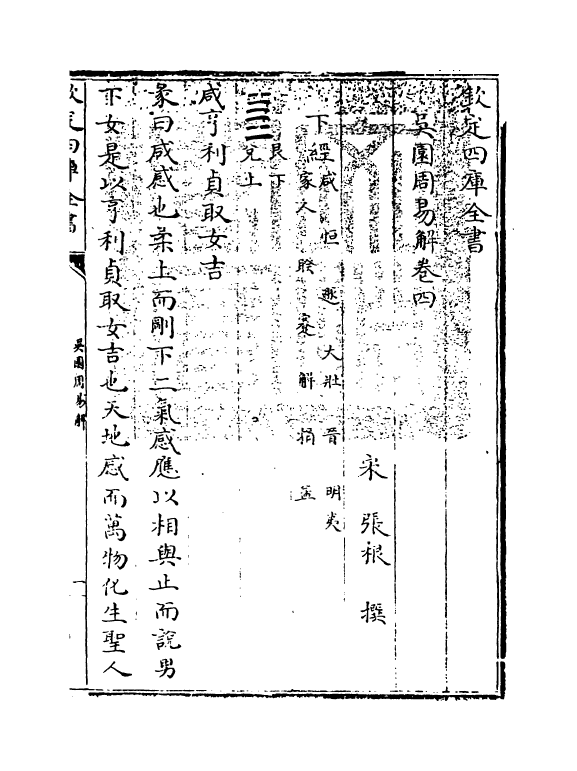 欽定四庫全書
吳園周易解卷四
宋 張根 撰
下經咸 恒 遯 大壯 晉 明夷
家人 睽 蹇 解 損 益
艮下
兌上
咸亨利貞取女吉
彖曰咸感也柔上而剛下二氣感應以相與止而說男
下女是以亨利貞取女吉也天地感而萬物化生聖人
欽定四庫全書
吳園周易解
一